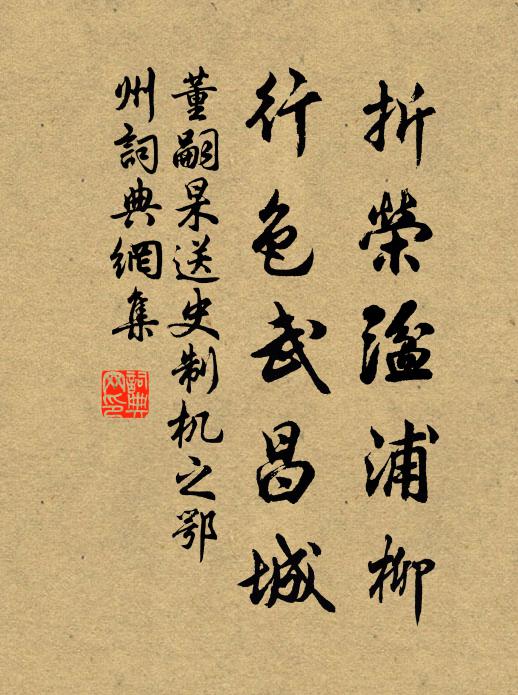 折榮湓浦柳
行色武昌城
董嗣杲送史制机之鄂
州詞典網集
詞典
网印